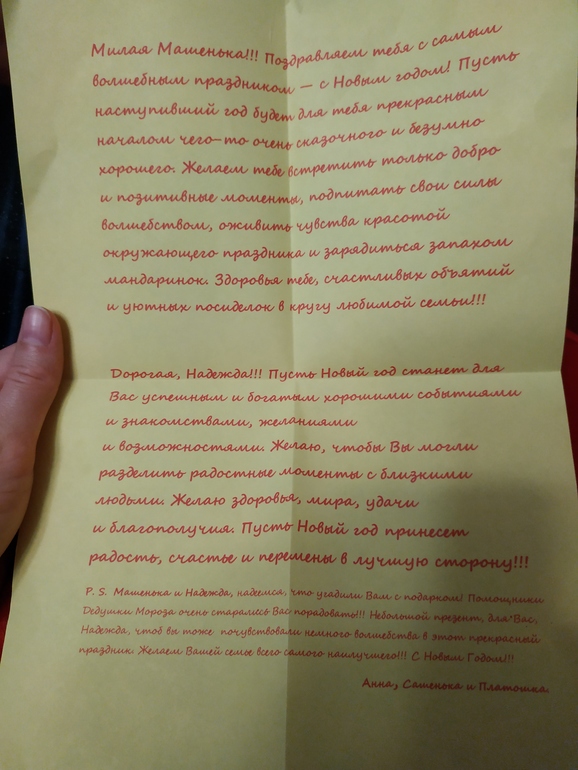 Милая Машенька!!! Поздравляем тебя с самым
волшебным праздником — с Новым годом! Пусть
наступивший год будет для тебя прекрасным
началом чего-то очень сказочного и безумно
хорошего. Желаем тебе встретить только добро
и позитивные моменты, подпитать свои силы
волшебством, оживить чувства красотой
окружающего праздника и зарядиться запахом
мандаринок. Здоровья тебе, счастливых объятий
и уютных посиделок в кругу любимой семьи!!!
Дорогая, Надежда!!! Пусть Новый год станет для
Вас успешным и богатым хорошими событиями
и знакомствами, желаниями
и возможностями. Желаю, чтобы Вы могли
разделить радостные моменты с близкими
людьми. Желаю здоровья, мира, удачи
и благополучия. Пусть Новый год принесет
радость, счастье и перемены в лучшую сторону!!!
P. S. Машенька и Надежда, надеемся, что угадили Вам с подарком! Помощники
Дедушки Мороза очень старались Вас порадовать!!! Небольшой презент, для Вас,
Надежда, чтоб вы тоже почувствовали немного волшебства в этот прекрасный
праздник. Желаем Вашей семье всего самого наилучшего!!! С Новым Годом!!!
Анна, Сашенька и Платошка.